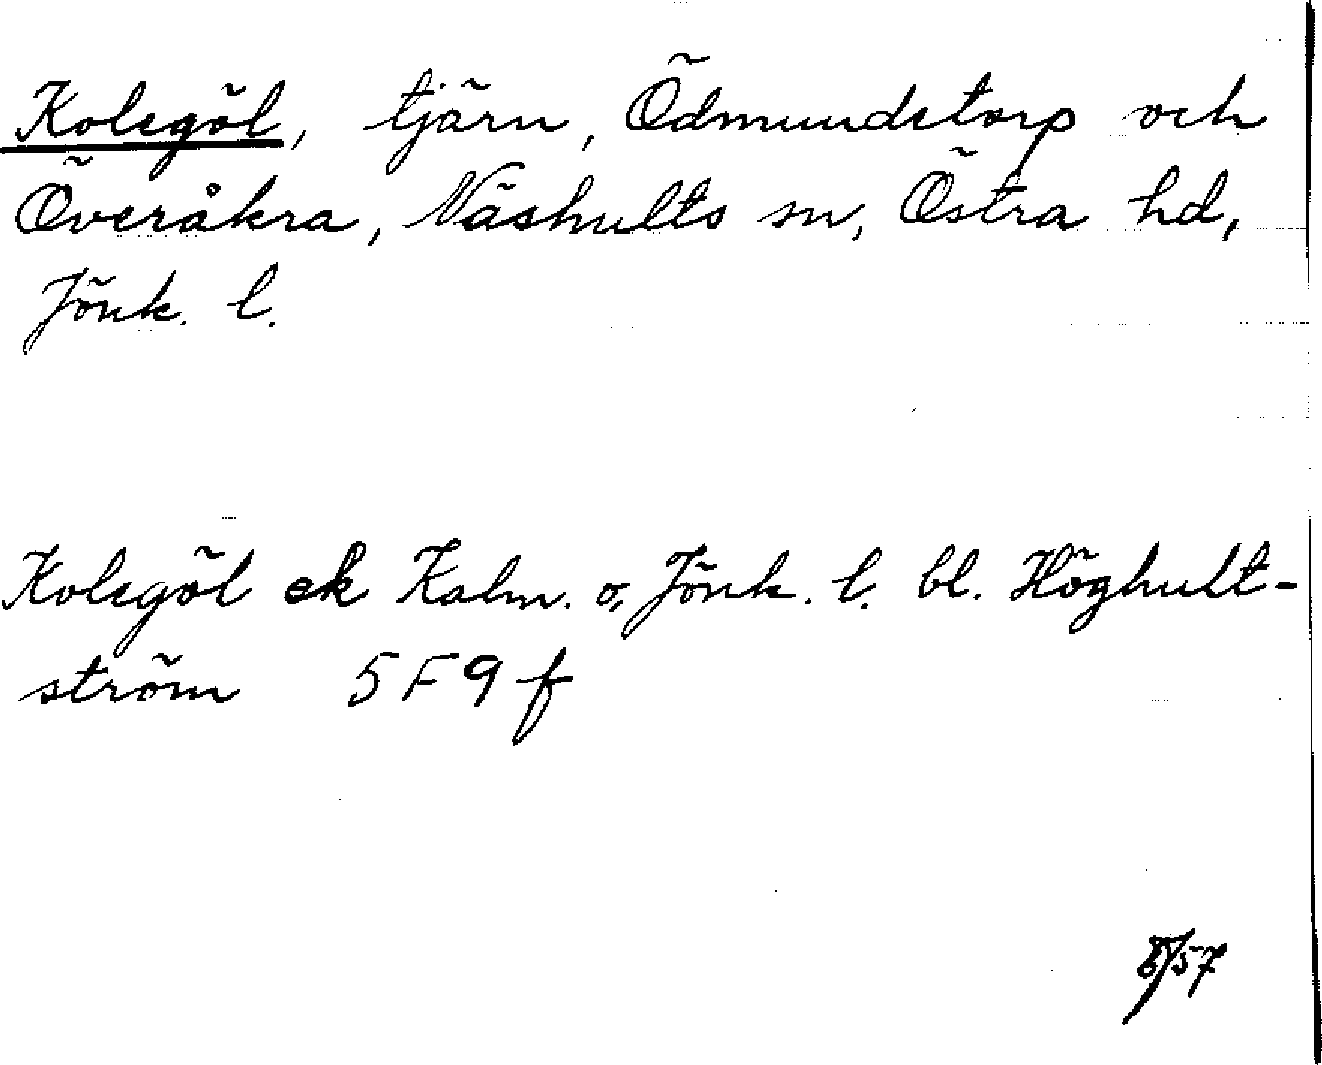 Kolsgöl, tjärn, Ödmundstorp och
Överåkra, Näshults sn, Östra hd,
Jönk. l.
Kolsgöl ek Kalm. o, Jönk. l. bl. Höghult-
ström 5F9f